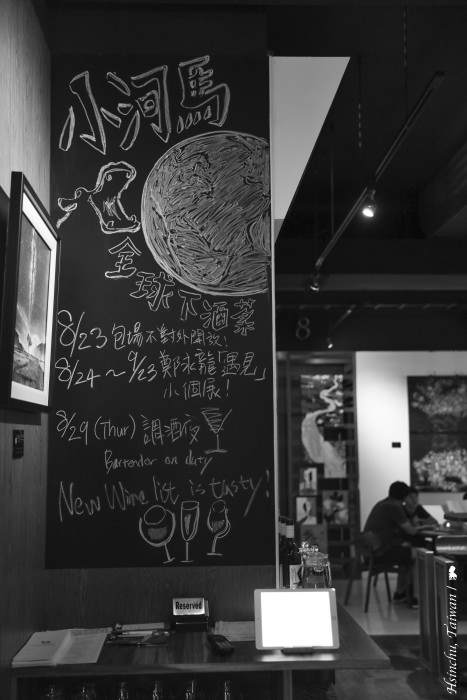 小河馬
全球下酒菜
8/23 包場不對外開放!
8/24~9/23 鄭永龍「遇見」
小個展!
8/29 (Thur) 調酒夜
Bartender on duty
New Wine list is tasty!
8
Reserved
Hsinchu, Taiwan |